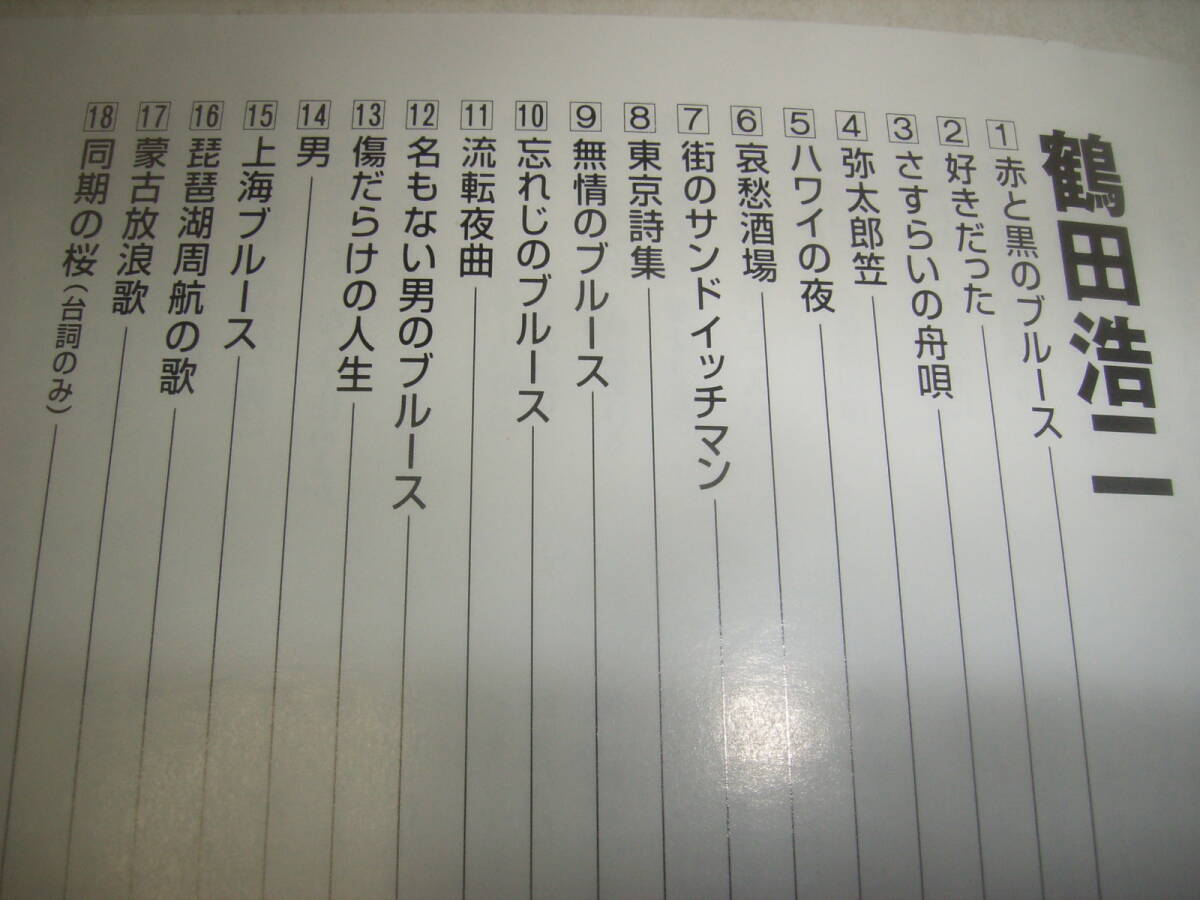 鶴田浩二
1 赤と黒のブルース
2 好きだった
3 さすらいの舟唄
4 弥太郎笠
5 ハワイの夜
6 哀愁酒場
7 街のサンドイッチマン
8 東京詩集
9 無情のブルース
10 忘れじのブルース
11 流転夜曲
12 名もない男のブルース
13 傷だらけの人生
14 男
15 上海ブルース
16 琵琶湖周航の歌
17 蒙古放浪歌
18 同期の桜（台詞のみ）